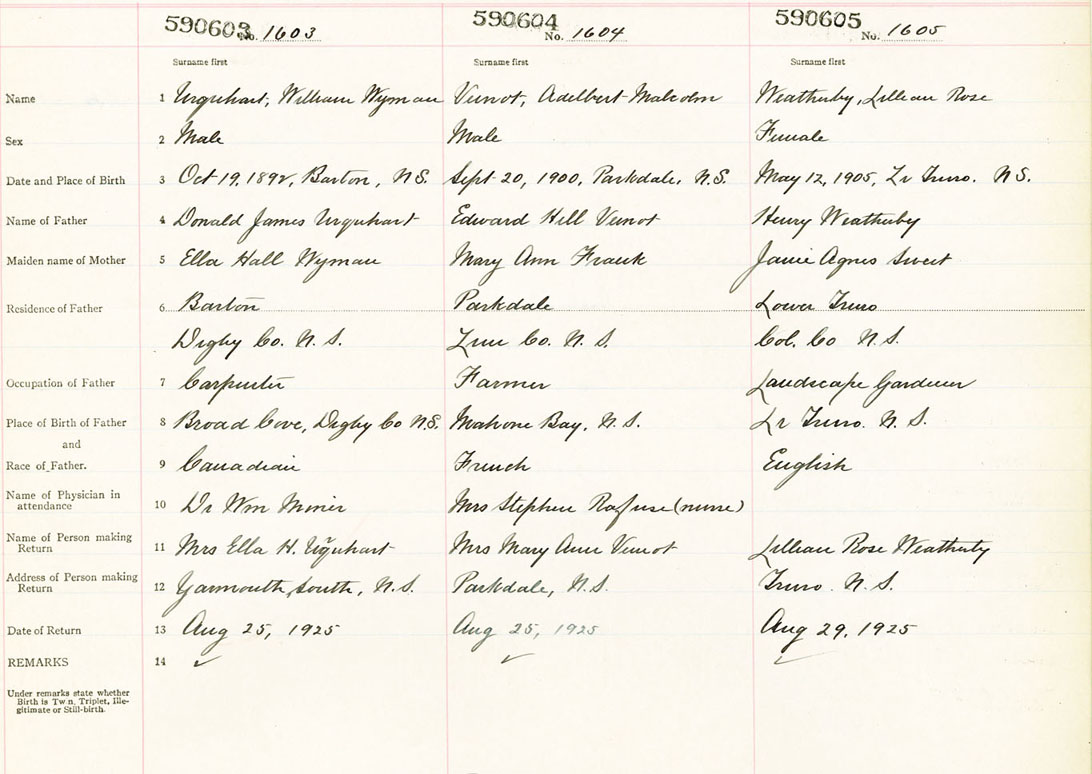 590603 No. 1603 590604 No. 1604 590605 No. 1605
Surname first Surname first Surname first
Name 1 Urquhart, William Wyman Veinot, Adelbert Malcolm Weatherby, Lillian Rose
Sex 2 Male Male Female
Date and Place of Birth 3 Oct 19, 1892, Barton, N.S. Sept 20, 1900, Parkdale, N.S. May 12, 1905, Lr Truro. N S.
Name of Father 4 Donald James Urquhart Edward Hill Veinot Henry Weatherby
Maiden name of Mother 5 Ella Hall Wyman Mary Ann Frank Janie Agnes Sweet
Residence of Father 6 Barton Parkdale Lower Truro
Digby Co. N. S. Lun Co. N. S. Col. Co N. S.
Occupation of Father 7 Carpenter Farmer Landscape Gardener
Place of Birth of Father 8 Broad Cove, Digby Co N.S. Mahone Bay, N. S. Lr Truro. N. S.
and
Race of Father. 9 Canadian French English
Name of Physician in
attendance 10 Dr Wm Mrs Stephen Rafuse (nurse)
Name of Person making
Return 11 Mrs Ella H. Urquhart Mrs Mary Ann Veinot Lillian Rose Weatherby
Address of Person making
Return 12 Yarmouth South, N.S. Parkdale, N.S. Truro. N. S.
Date of Return 13 Aug 25, 1925 Aug 25, 1925 Aug 29, 1925
REMARKS 14 ✓ ✓ ✓
Under remarks state whether
Birth is Tw n, Triplet, Ille-
gitimate or Still-birth.